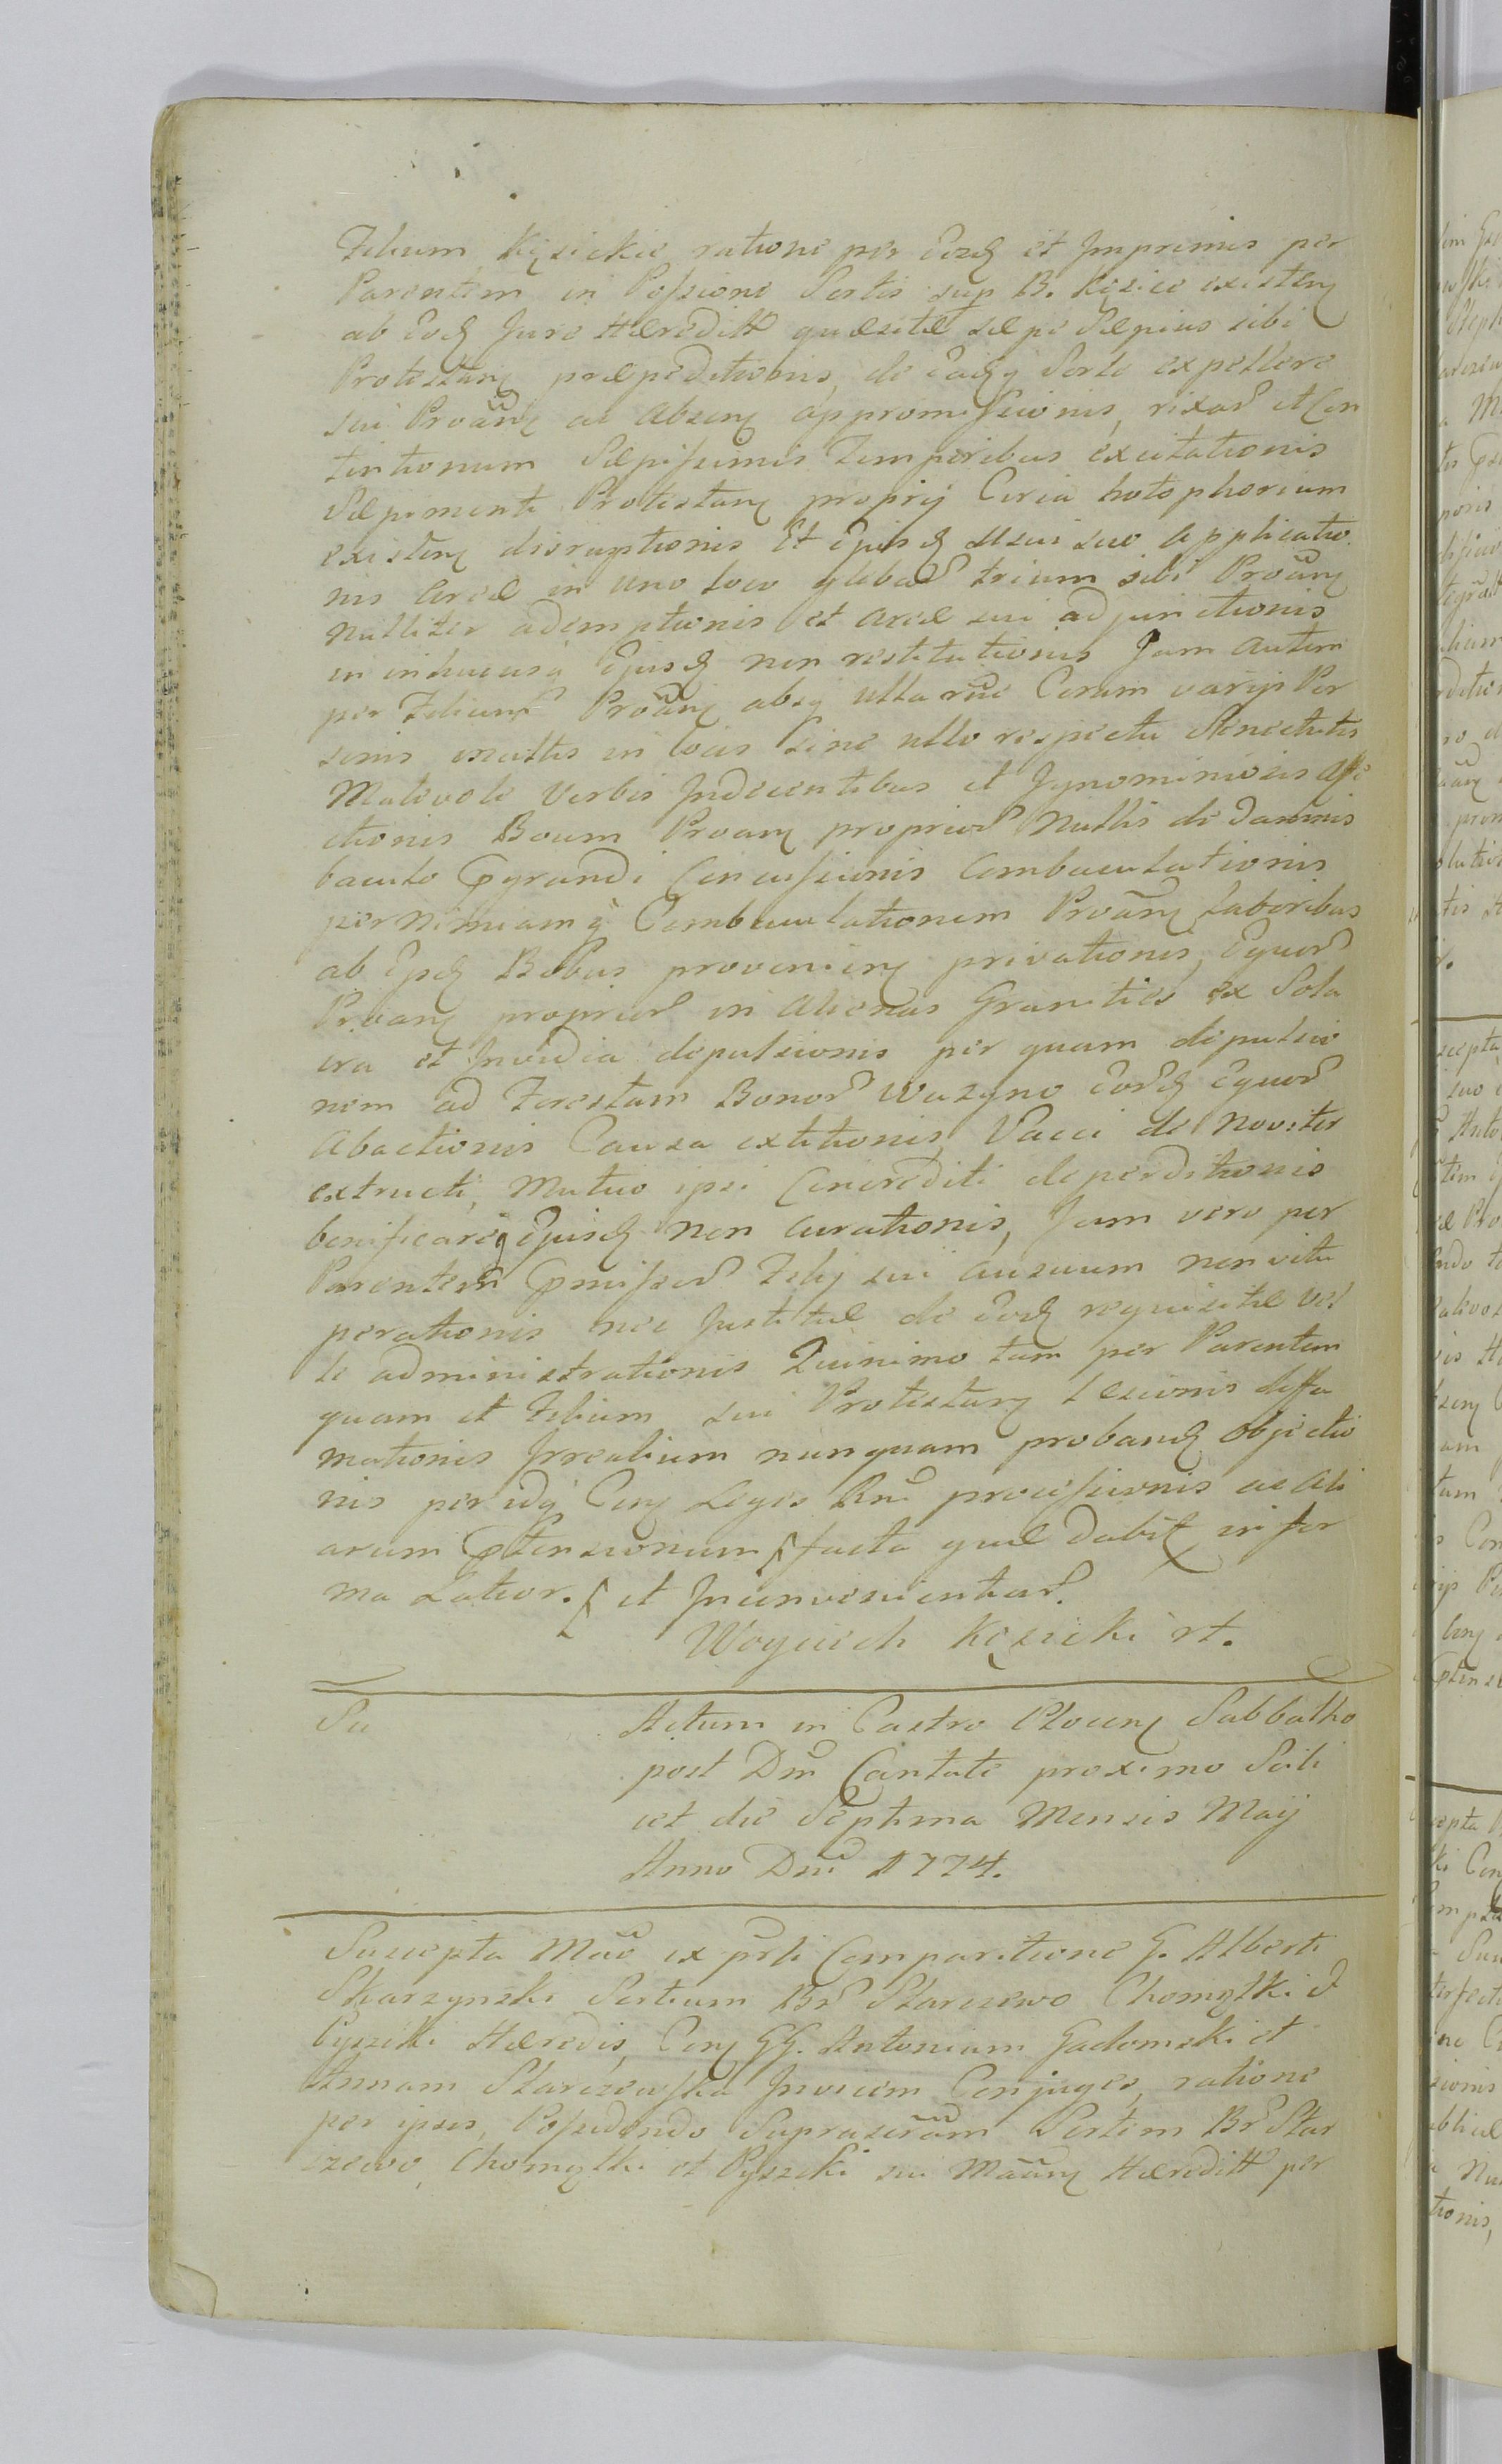 Filium Kęsickie ratione per Eosd et Imprimis per
Parentem in Possione Sortis sup B. Kęsice existen
ab Eod Jure Hæreditt quæsitæ sæpe Sæpius sibi
Protestan præpeditionis, de eadq Sorte expellere
sui Proãn ac Absen appromissionis, rixar et Con
tentionum Sæpissimis Temporibus excitationis
Sæpimenti Protestan proprij Circa hotophorium
existen disruptionis Et Ejusd Usui suo Applicatio
nis Areæ in uno loco glebar trium sibi Proãn
nulliter ademptionis et Areæ sui adjunctionis
in inhucusq Ejusd non restitutionis Jam autem
per Filium Proãn absq ulla rñe Coram varijs Per
sonis multis in locis Sine ullo respectu Senectutis
Malevole Verbis Indecentibus et Ignominiosis affe
ctionis Boum Proan proprior Nullis de Damnis
baculo Pgrandi Concussionis Combaculationis
per Nimiamq Combaculationem Proãn Laboribus
ab Ipsd Bobus provenien privationis, Equor
Proan proprior in Alienas Granities ex Sola
ira et Invidia depulsionis per quam depulsio
nem ad Forestam Bonor Wazyno Eord Equor
Abactionis Causa extitionis, Vacci de Noviter
extructi, Mutuo ipsi Concrediti deperditionis
bonificareq Ejusd non Curationis, Jam vero per
Parentem Pmissor Filij sui Ausuum non vitu
perationis nec Justitiæ de Eod requisitæ vel
le administrationis Quinimo tam per Parentem
quam et Filium sui Protestan Læsionis diffa
mationis Irrealium nunquam proband Objectio
nis per idq Con Leges Rñi processionis ac ali
arum Ptensionum facta quæ dabit in for
ma Latior. et Inconvenientiar.
Woyciech Kęsicki rt.
Su
Actum in Castro Plocen Sabbatho
post Dm̃ Cantate proximo Scili
cet die Septima Mensis Maij
Anno Dni 1774.
Suscepta Mãõ ex prli Comparitione G. Alberti
Skarzynski Sortium Br Starczewo Chomętki &
Pyszki Hæredis, Con GG. Antonium Gadomski et
Annam Starczewska Invicem Conjuges, ratione
per ipsos, Possidendo Suprascr̃am Sortem Br Star
czewo, Chomętki et Pyszcki sui Mãan Hæreditt per